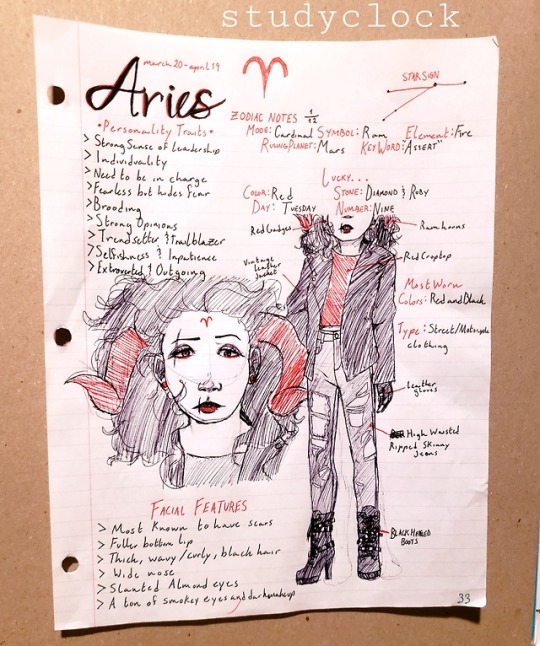 studyclock
march 20-april 19
Aries
STAR SIGN
ZODIAC NOTES 1/12
MODE: Cardinal SYMBOL: Ram Element: Fire
RULING PLANET: Mars KEY WORD: "ASSERT"
•Personality Traits•
> Strong Sense of leadership
> Individuality
> Need to be in charge
> Fearless but hides fear
> Brooding
> Strong Opinions
> Trendsetter & Trailblazer
> Selfishness & Inpatience
> Extroverted & Outgoing
LUCKY...
COLOR: Red STONE: DIAMOND & RUBY
DAY: TUESDAY NUMBER: NINE
Ram horns
Vintage
leather
jacket
Red Croptop
Most Worn
Colors: Red and Black
Type: Street/Motorcycle
clothing
Leather
gloves
High Waisted
Ripped Skinny
Jeans
BLACK HEELED
BOOTS
FACIAL FEATURES
> Most Known to have scars
> Fuller bottom lip
> Thick, wavy/curly, black hair
> Wide nose
> Slanted Almond eyes
> A ton of smokey eyes and dark makeup
33